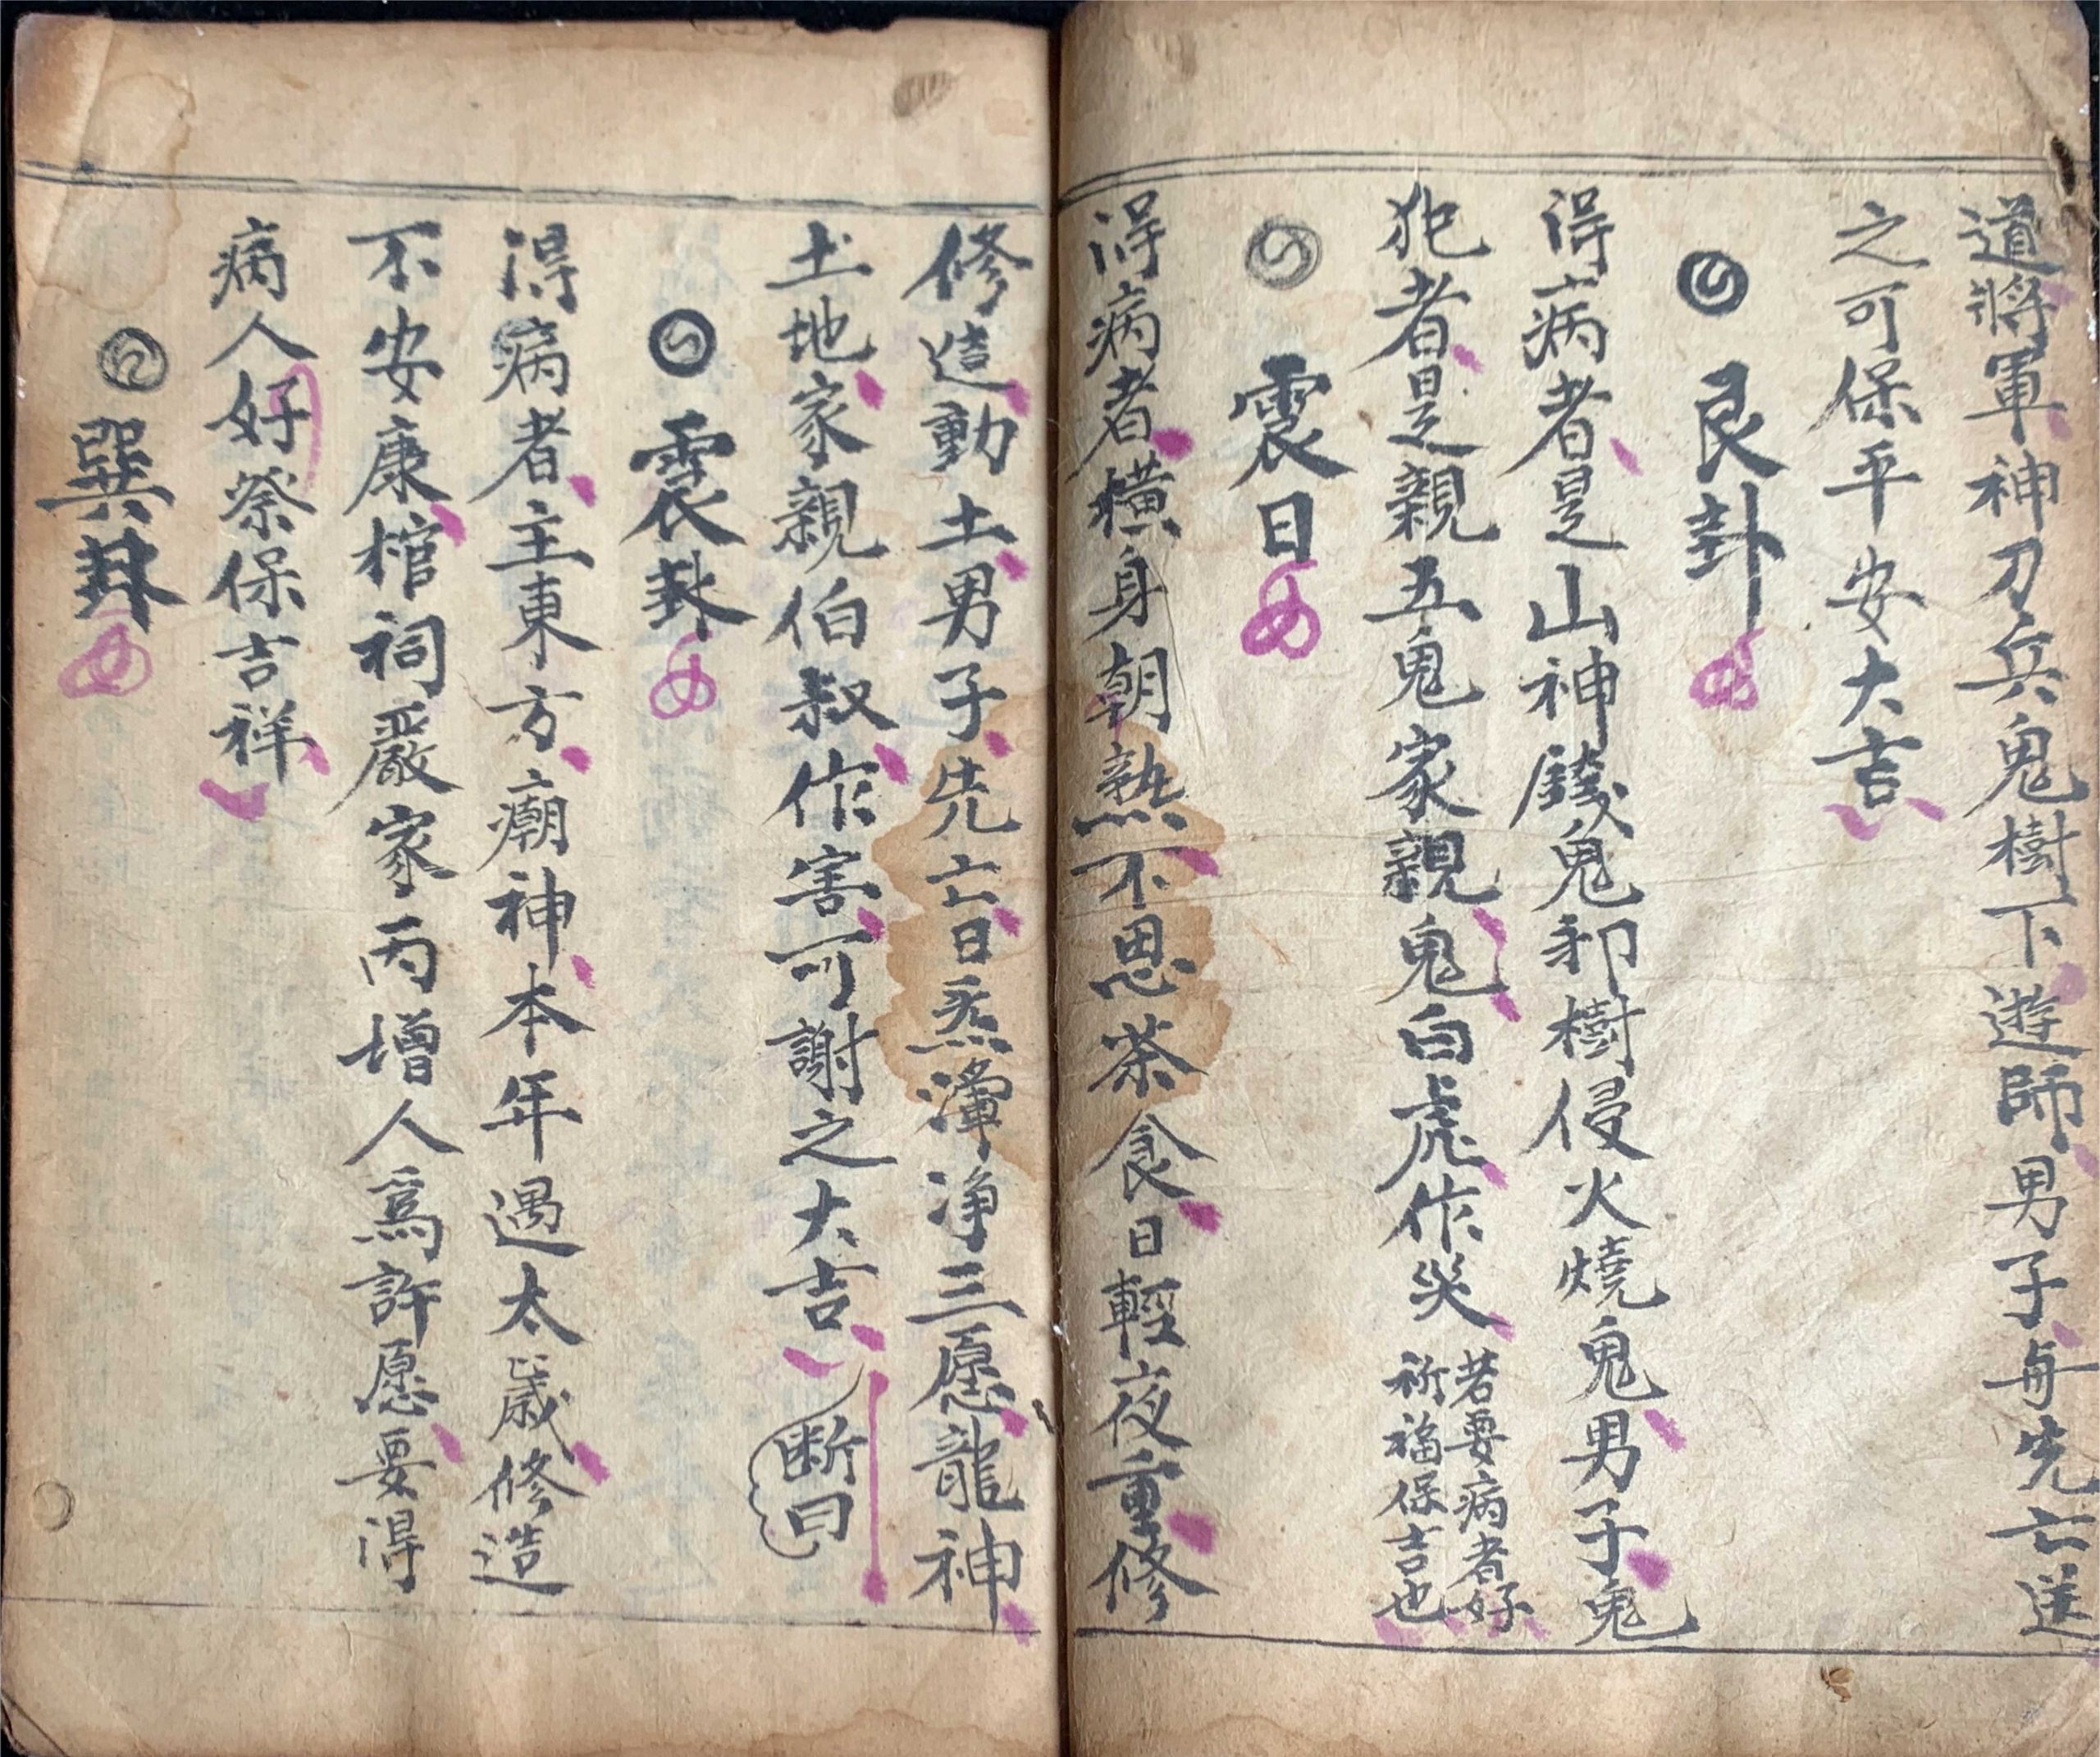 道將軍神刀兵鬼樹下遊師男子每先亡送
之可保平安大吉
艮卦
淂病者是山神錢鬼卯樹侵火燒鬼男子鬼
犯者是親五鬼家親鬼白虎作災
若要病者好
祈福保吉也
震日
淂病者橫身朝熱不思茶食日輕夜重修
修造動土男子先亡日𤇆瀈净三愿龍神
土地家親伯叔作害可謝之大吉
断曰
震卦
淂病者主東方廟神本年遇太歲修造
不安康棺祠嚴家丙增人爲許愿要淂
病人好祭保吉祥
巽卦